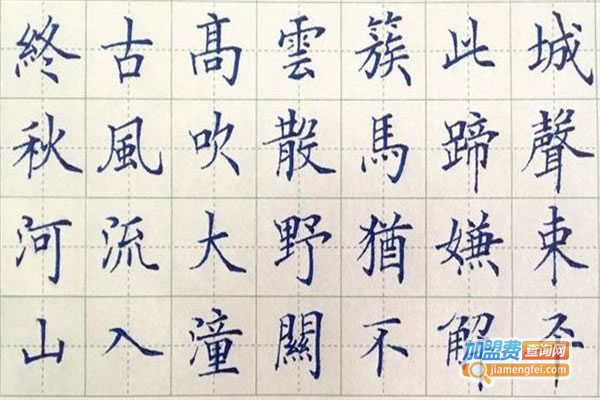 終古髙雲簇此城
秋風吹散馬蹄聲
河流大野猶嫌束
山入潼關不解平
加盟费查询网
jiamengfei.com